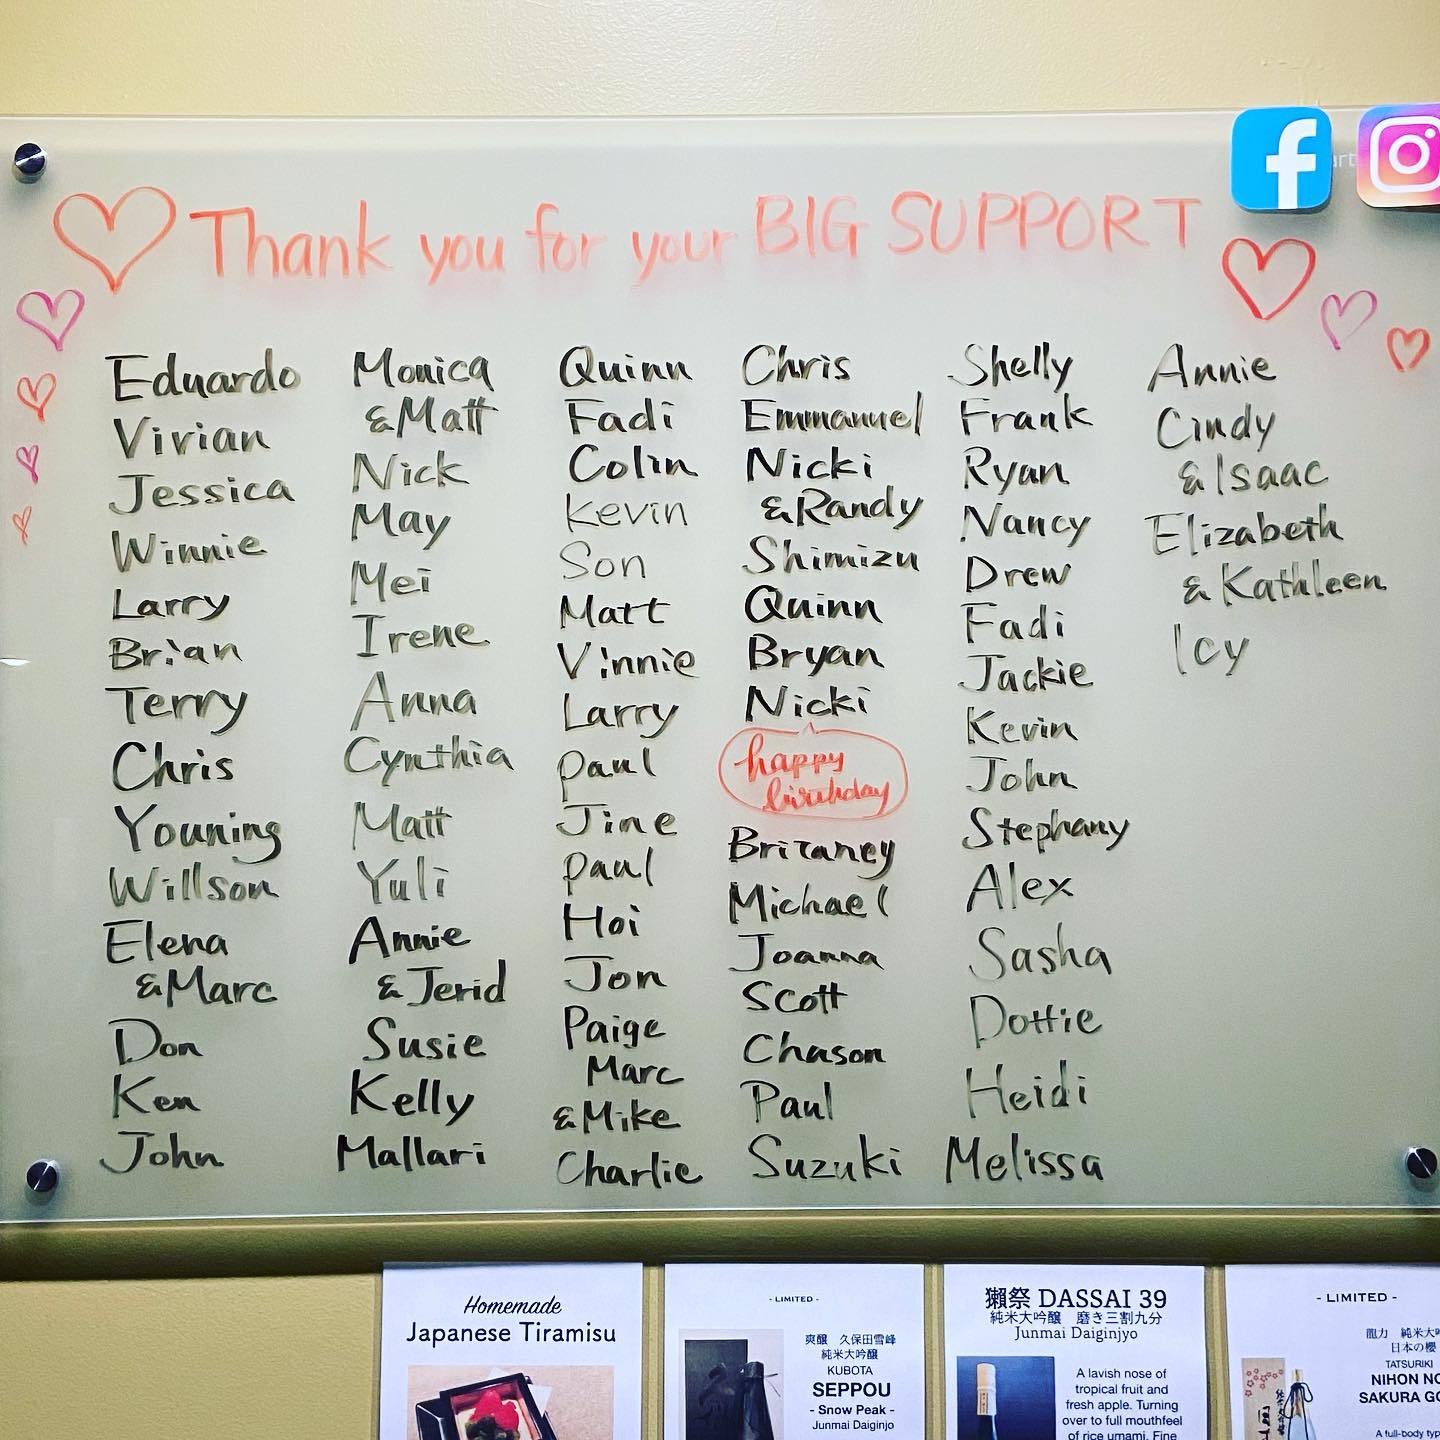 Thank you for your BIG SUPPORT
Eduardo
Vivian
Jessica
Winnie
Larry
Brian
Terry
Chris
Youning
Willson
Elena
&Marc
Don
Ken
John
Monica
&Matt
Nick
May
Mei
Irene
Anna
Cynthia
Matt
Yuli
Annie
&Jerid
Susie
Kelly
Mallari
Quinn
Fadi
Colin
Kevin
Son
Matt
Vinnie
Larry
Paul
Jine
Paul
Hoi
Jon
Paige
Marc
&Mike
Charlie
Chris
Emmanuel
Nicki
&Randy
Shimizu
Quinn
Bryan
Nicki
happy
birthday
Britaney
Michael
Joanna
Scott
Chason
Paul
Suzuki
Shelly
Frank
Ryan
Nancy
Drew
Fadi
Jackie
Kevin
John
Stephany
Alex
Sasha
Dottie
Heidi
Melissa
Annie
Cindy
&Isaac
Elizabeth
&Kathleen
Icy
Homemade
Japanese Tiramisu
- LIMITED -
爽醸 久保田雪峰
純米大吟醸
KUBOTA
SEPPOU
- Snow Peak -
Junmai Daiginjo
獺祭 DASSAI 39
純米大吟醸 磨き三割九分
Junmai Daiginjyo
A lavish nose of
tropical fruit and
fresh apple. Turning
over to full mouthfeel
of rice umami. Fine
- LIMITED -
龍力 純米大吟
日本の櫻
TATSURIKI
NIHON NO
SAKURA GO
A full-body typ